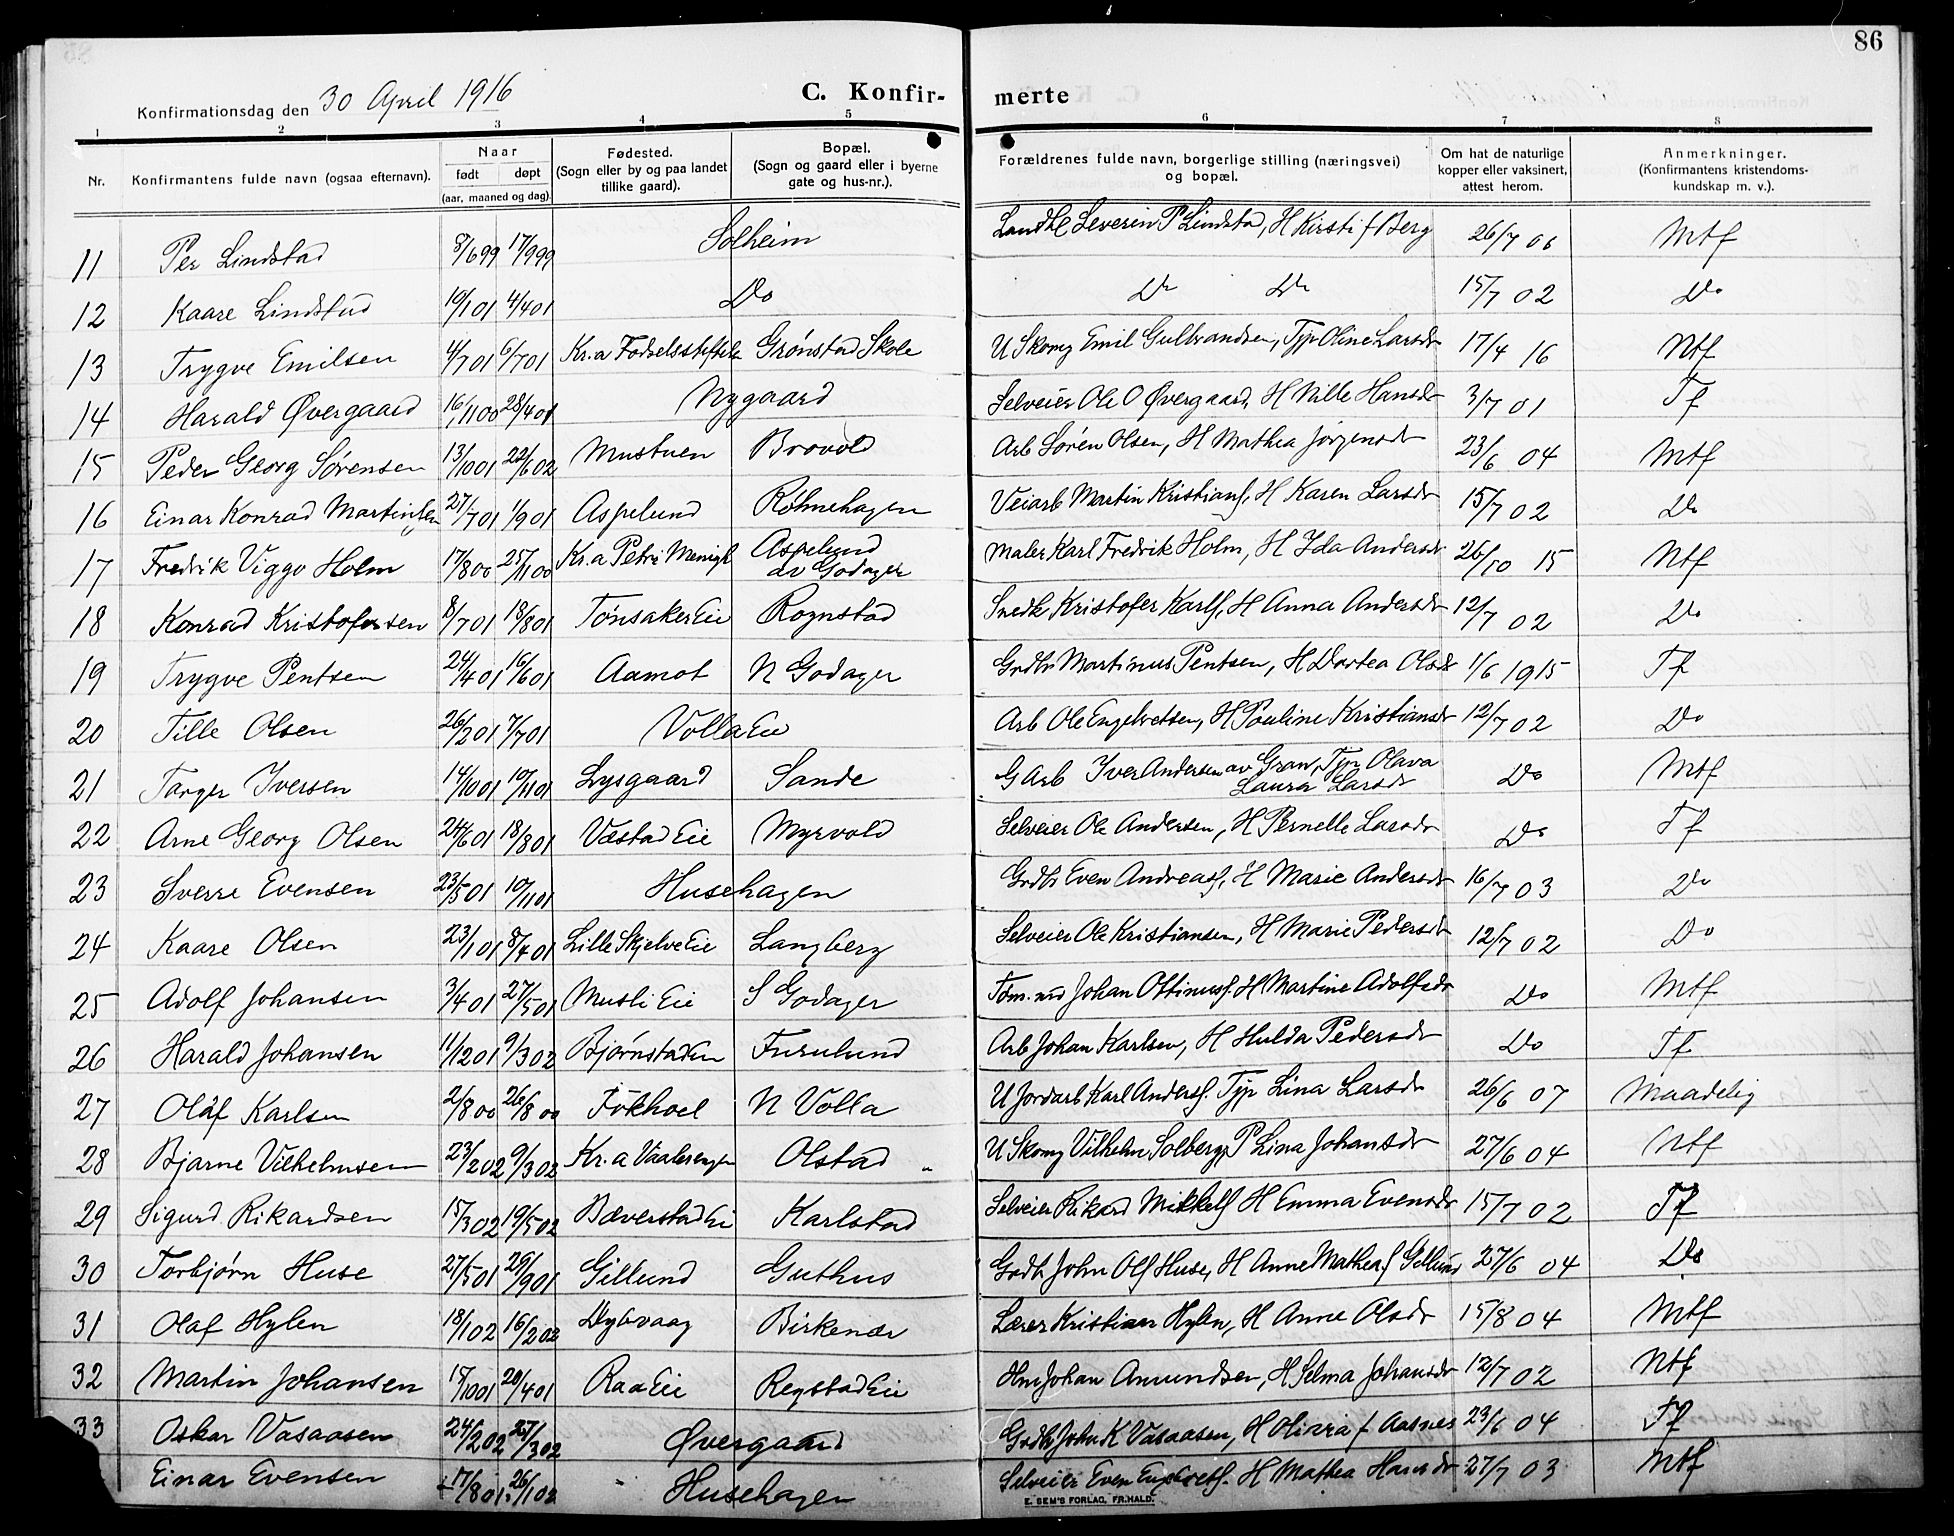 86
Konfirmationsdag den 30 April 1916
C. Konfir- merte
1 2 3 4 5 6 7 8
Nr. Konfirmantens fulde navn (ogsaa efternavn). Naar født døpt (aar, maaned og dag). Fødested. (Sogn eller by og paa landet tillike gaard). Bopæl. (Sogn og gaard eller i byerne gate og hus-nr.). Forældrenes fulde navn, borgerlige stilling (næringsvei) og bopæl. Om hat de naturlige kopper eller vaksinert, attest herom. Anmerkninger. (Konfirmantens kristendoms- kundskap m. v.).
11 Per Lindstad 8/6 99 17/9 99 Solheim Landhl Severin P Lindstad, H Kirsti f Berg 26/7 06 Mtf
12 Kaare Lindstad 19/1 01 4/4 01 Do Do Do 15/7 02 Do
13 Trygve Emilsen 4/7 01 6/7 01 Kr.a Fødselsstiftelse Grønstad Skole U Skomg Emil Gulbrandsen, Typ Oline Larsdr 17/4 16 Ntf
14 Harald Øvergaard 16/11 00 28/4 01 Nygaard Selveier Ole O Øvergaard, H Nille Hansdr 3/7 01 Tf
15 Peder Georg Sørensen 13/10 01 22/6 02 Mustuen Brovold Arb Søren Olsen, H Mathea Jørgensdr 23/6 04 Mtf
16 Einar Konrad Martinsen 27/7 01 1/9 01 Aspelund Røhnehagen Veiarb Martin Kristians., H Karen Larsdr 15/7 02 Do
17 Fredrik Viggo Holm 17/8 00 25/11 00 Kr.a Petri Menigh Aspelund av Godager Maler Karl Fredrik Holm, H Ida Andersdr 26/10 15 Ntf
18 Konrad Kristofersen 8/7 01 18/8 01 Tønsaker Eie Rognstad Snedk Kristofer Karls, H Anna Andersdr 12/7 02 Do
19 Trygve Pentsen 24/4 01 16/6 01 Aamot N Godager Grdbr Martinus Pentsen, H Dortea Olsdr 1/6 1915 Tf
20 Tille Olsen 26/2 01 7/7 01 Volla Eie Arb Ole Engebretsen, H Pauline Kristiansdr 12/7 02 Do
21 Torger Iversen 14/10 01 10/11 01 Lysgaard Sande G Arb Iver Andersen av Gran, Typ Olava Laura Larsdr Do Mtf
22 Arne Georg Olsen 24/6 01 18/8 01 Væstad Eie Myrvold Selveier Ole Andersen, H Pernelle Larsdr Do Tf
23 Sverre Evensen 23/5 01 10/11 01 Husehagen Grdbr Even Andreas, H Marie Andersdr 16/7 03 Do
24 Kaare Olsen 23/1 01 8/4 01 Lille Skjelve Eie Langberg Selveier Ole Kristiansen, H Marie Pedersdr 12/7 02 Do
25 Adolf Johansen 3/4 01 27/5 01 Musli Eie S Godager Tøm.md Johan Ottinus. H Martine Adolfsdr Do Mtf
26 Harald Johansen 11/12 01 9/3 02 Bjørnstad Eie Furulund Arb Johan Karlsen, H Hulda Pedersdr Do Tf
27 Olaf Karlsen 2/8 00 26/8 00 Fokhoel N Volla U Jordarb Karl Anders. Typ Lina Larsdr 26/6 07 Maadelig
28 Bjarne Vilhelmsen 23/2 02 9/3 02 Kr.a Vaalerengen Olstad U Skomg Vilhelm Solberg, P Lina Johansdr 27/6 04 Ntf
29 Sigurd Rikardsen 15/3 02 19/5 02 Bæverstad Ei Karlstad Selveier Rikard Mikkels H Emma Evensdr 15/7 02 Tf
30 Torbjørn Huse 27/5 01 29/9 01 Gillund Guthus Grdbr John Ols Huse, H Anne Mathea f Gillund 27/6 04 Do
31 Olaf Hylen 18/1 02 16/2 02 Dybvaag Birkenær Lærer Kristian Hylen, H Anne Olsdr 15/8 04 Mtf
32 Martin Johansen 15/10 01 20/4 01 Raa Eie Regstad Eie Hm Johan Amundsen, H Selma Johansdr 12/7 02 Ntf
33 Oskar Vasaasen 24/2 02 27/3 02 Øvergaard Grdbr John K Vasaasen, H Olivia f Aasnes 23/6 04 Tf
Einar Evensen 17/8 01 26/1 02 Husehagen Selveier Even Engebrets. H Mathea Hansdr 27/7 03 Mtf
E. SEM'S FORLAG, FR.HALD.